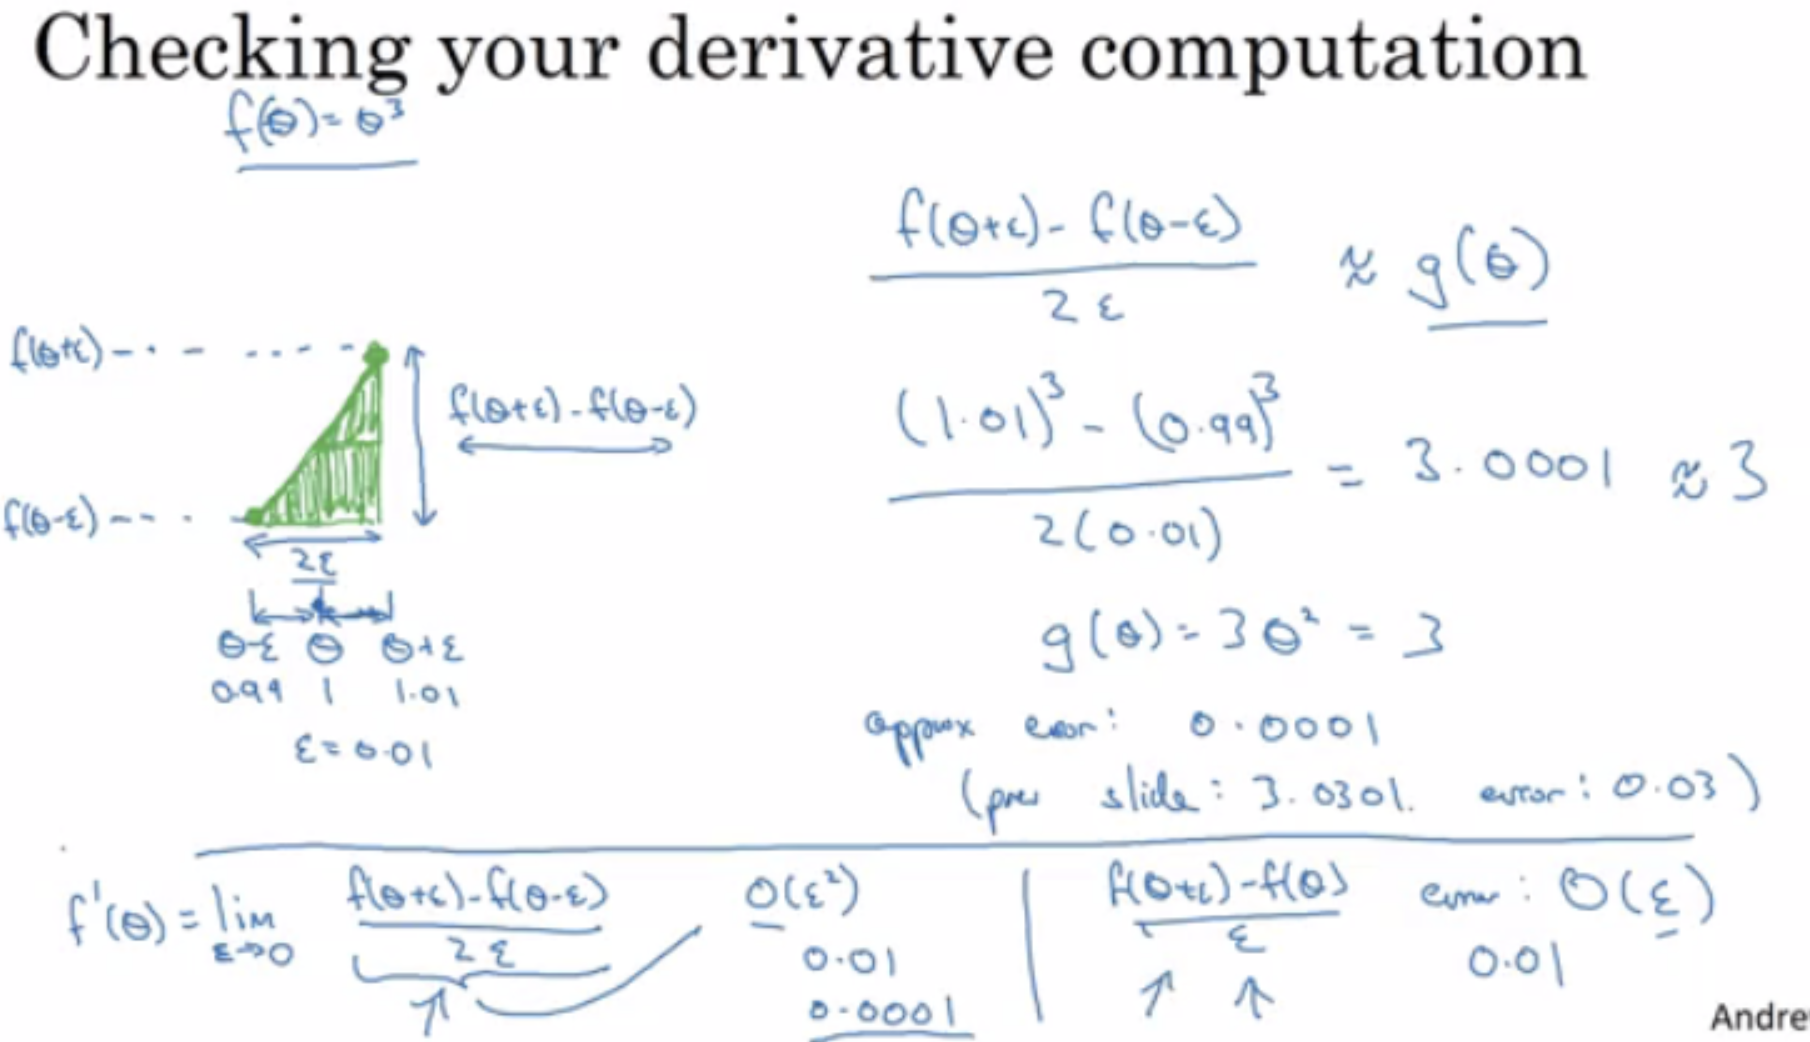 Checking your derivative computation
f(θ) = θ³
f(θ+ε) - f(θ-ε)
2ε
≈ g(θ)
f(θ+ε)
f(θ+ε) - f(θ-ε)
f(θ-ε)
2ε
θ-ε θ θ+ε
0.99 1 1.01
ε = 0.01
(1.01)³ - (0.99)³
2(0.01)
= 3.0001 ≈ 3
g(θ) = 3θ² = 3
approx error: 0.0001
(prev slide: 3.0301. error: 0.03)
f'(θ) = lim
ε→0
f(θ+ε) - f(θ-ε)
2ε
O(ε²)
0.01
0.0001
f(θ+ε) - f(θ)
ε
error: O(ε)
0.01
Andre